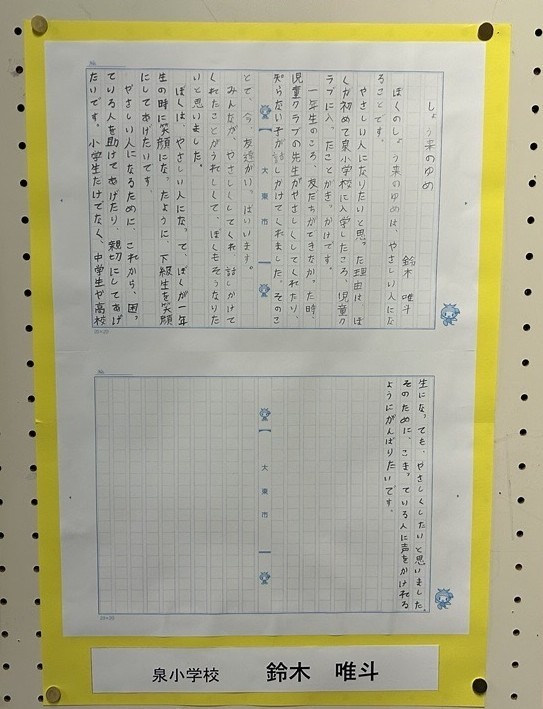 しょう来のゆめ
鈴木　唯斗
ぼくのしょう来のゆめは、やさしい人にな
ることです。
やさしい人になりたいと思った理由は、ぼ
くが初めて泉小学校に入学したころ、児童ク
ラブに入ったことがきっかけです。
一年生のころ、友だちができなかった時、
児童クラブの先生がやさしくしてくれたり、
知らない子が話しかけてくれました。そのこ
大東市
とて、今、友達がいっぱいいます。
みんなが、やさしくしてくれ、話しかけて
くれたことがうれしくて、ぼくもそうなりた
いと思いました。
ぼくは、やさしい人になって、ぼくが一年
生の時に笑顔になったように、下級生を笑顔
にしてあげたいです。
やさしい人になるために、これから、困っ
ている人を助けてあげたり、親切にしてあげ
たいです。小学生だけでなく、中学生や高校
生になっても、やさしくしたいと思いました。
そのために、こまっている人に声をかけれる
ようにがんばりたいです。
大東市
20×20
泉小学校　鈴木　唯斗